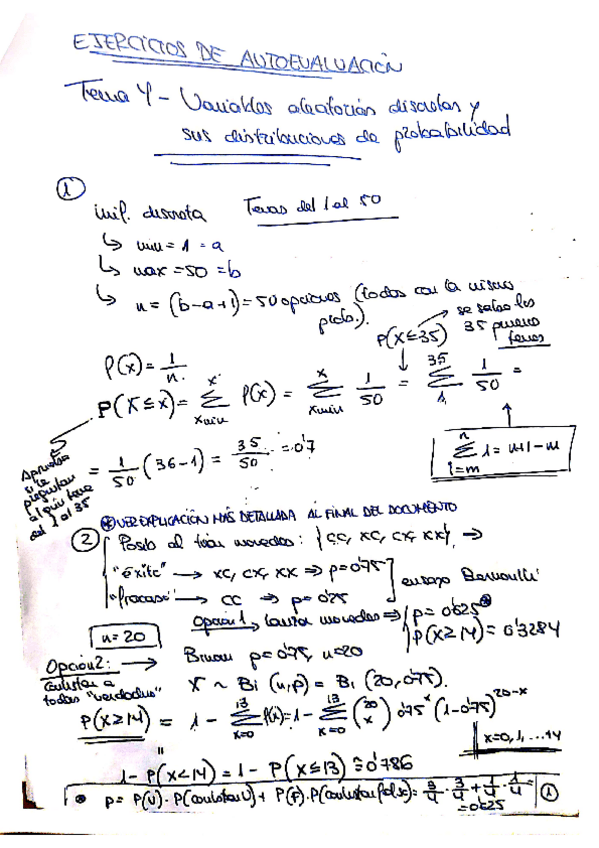 EJERCICIOS DE AUTOEVALUACIÓN
Tema 4 - Variables aleatorias discretas y
sus distribuciones de probabilidad
①
unif. discreta Temas del 1 al 50
↳ min = 1 = a
↳ max = 50 = b
↳ n = (b-a+1) = 50 opciones (todos con la misma
prob.).
P(X≤35) se salen los
35 primeros
temas
P(x) = 1/n.
P(X≤x) = Σ_{xmin}^{x} P(x) = Σ_{xmin}^{x} 1/50 = Σ_{1}^{35} 1/50 =
= 1/50 (36-1) = 35/50 = 0'7
Σ_{i=m}^{n} 1 = n+1-m
Aprueba
si le
preguntan
algún tema
del 1 al 35
⊛ VER EXPLICACIÓN MÁS DETALLADA AL FINAL DEL DOCUMENTO
② Posib al tirar monedas: {CC, XC, CX, XX} →
"éxito" → XC, CX, XX ⇒ p=0'75
"fracaso" → CC ⇒ p=0'25
ensayo Bernoulli
n=20
Opción 1, lanzar monedas ⇒ p = 0'625 ⊛
P(X≥14) = 0'3284
Opción 2: →
contestar a
todas "verdadero"
Binom p=0'75, n=20
X ~ Bi (n,p) = Bi (20, 0'75).
P(X≥14) = 1 - Σ_{x=0}^{13} P(x) = 1 - Σ_{x=0}^{13} (20 x) 0'75^x (1-0'75)^{20-x}
x=0,1,...14
"
1 - P(X<14) = 1 - P(X≤13) ≅ 0'786
⊛ p = P(V)·P(contestar V) + P(F)·P(contestar falso) = 3/4 · 3/4 + 1/4 · 1/4 =
= 0'625
①